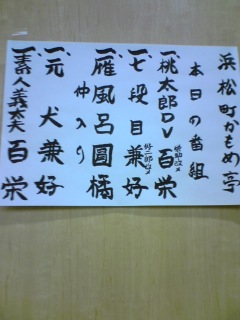 浜松町かもめ亭
本日の番組
一、桃太郎DV 百栄
一、七段目 兼好
好二郎改メ
一、雁風呂 圓橘
仲入り
一、元犬 兼好
一、素人義太夫 百栄